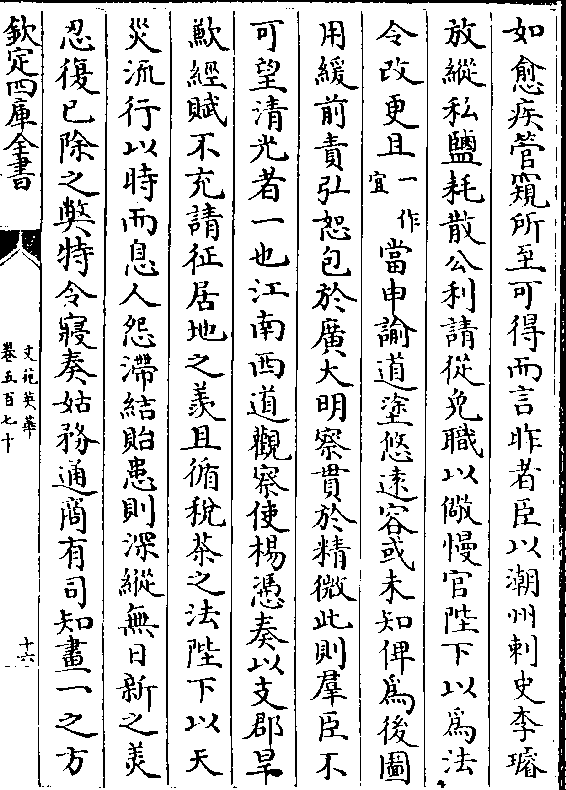 如愈疾管窺所至可得而言昨者臣以潮州刺史李璿
放縱私鹽耗散公利請從免職以儆慢官陛下以為法
令改更且一作宜當申諭道塗悠遠容或未知俾為後圖
用緩前責弘恕包於廣大明察貫於精微此則羣臣不
可望清光者一也江南西道觀察使楊憑奏以支郡旱
歉經賦不充請征居地之羨且循稅茶之法陛下以天
災流行以時而息人怨滯結貽患則深縱無日新之美
忍復已除之弊特令寢奏姑務通商有司知畫一之方
欽定四庫全書
文苑英華
卷五百七十
十六